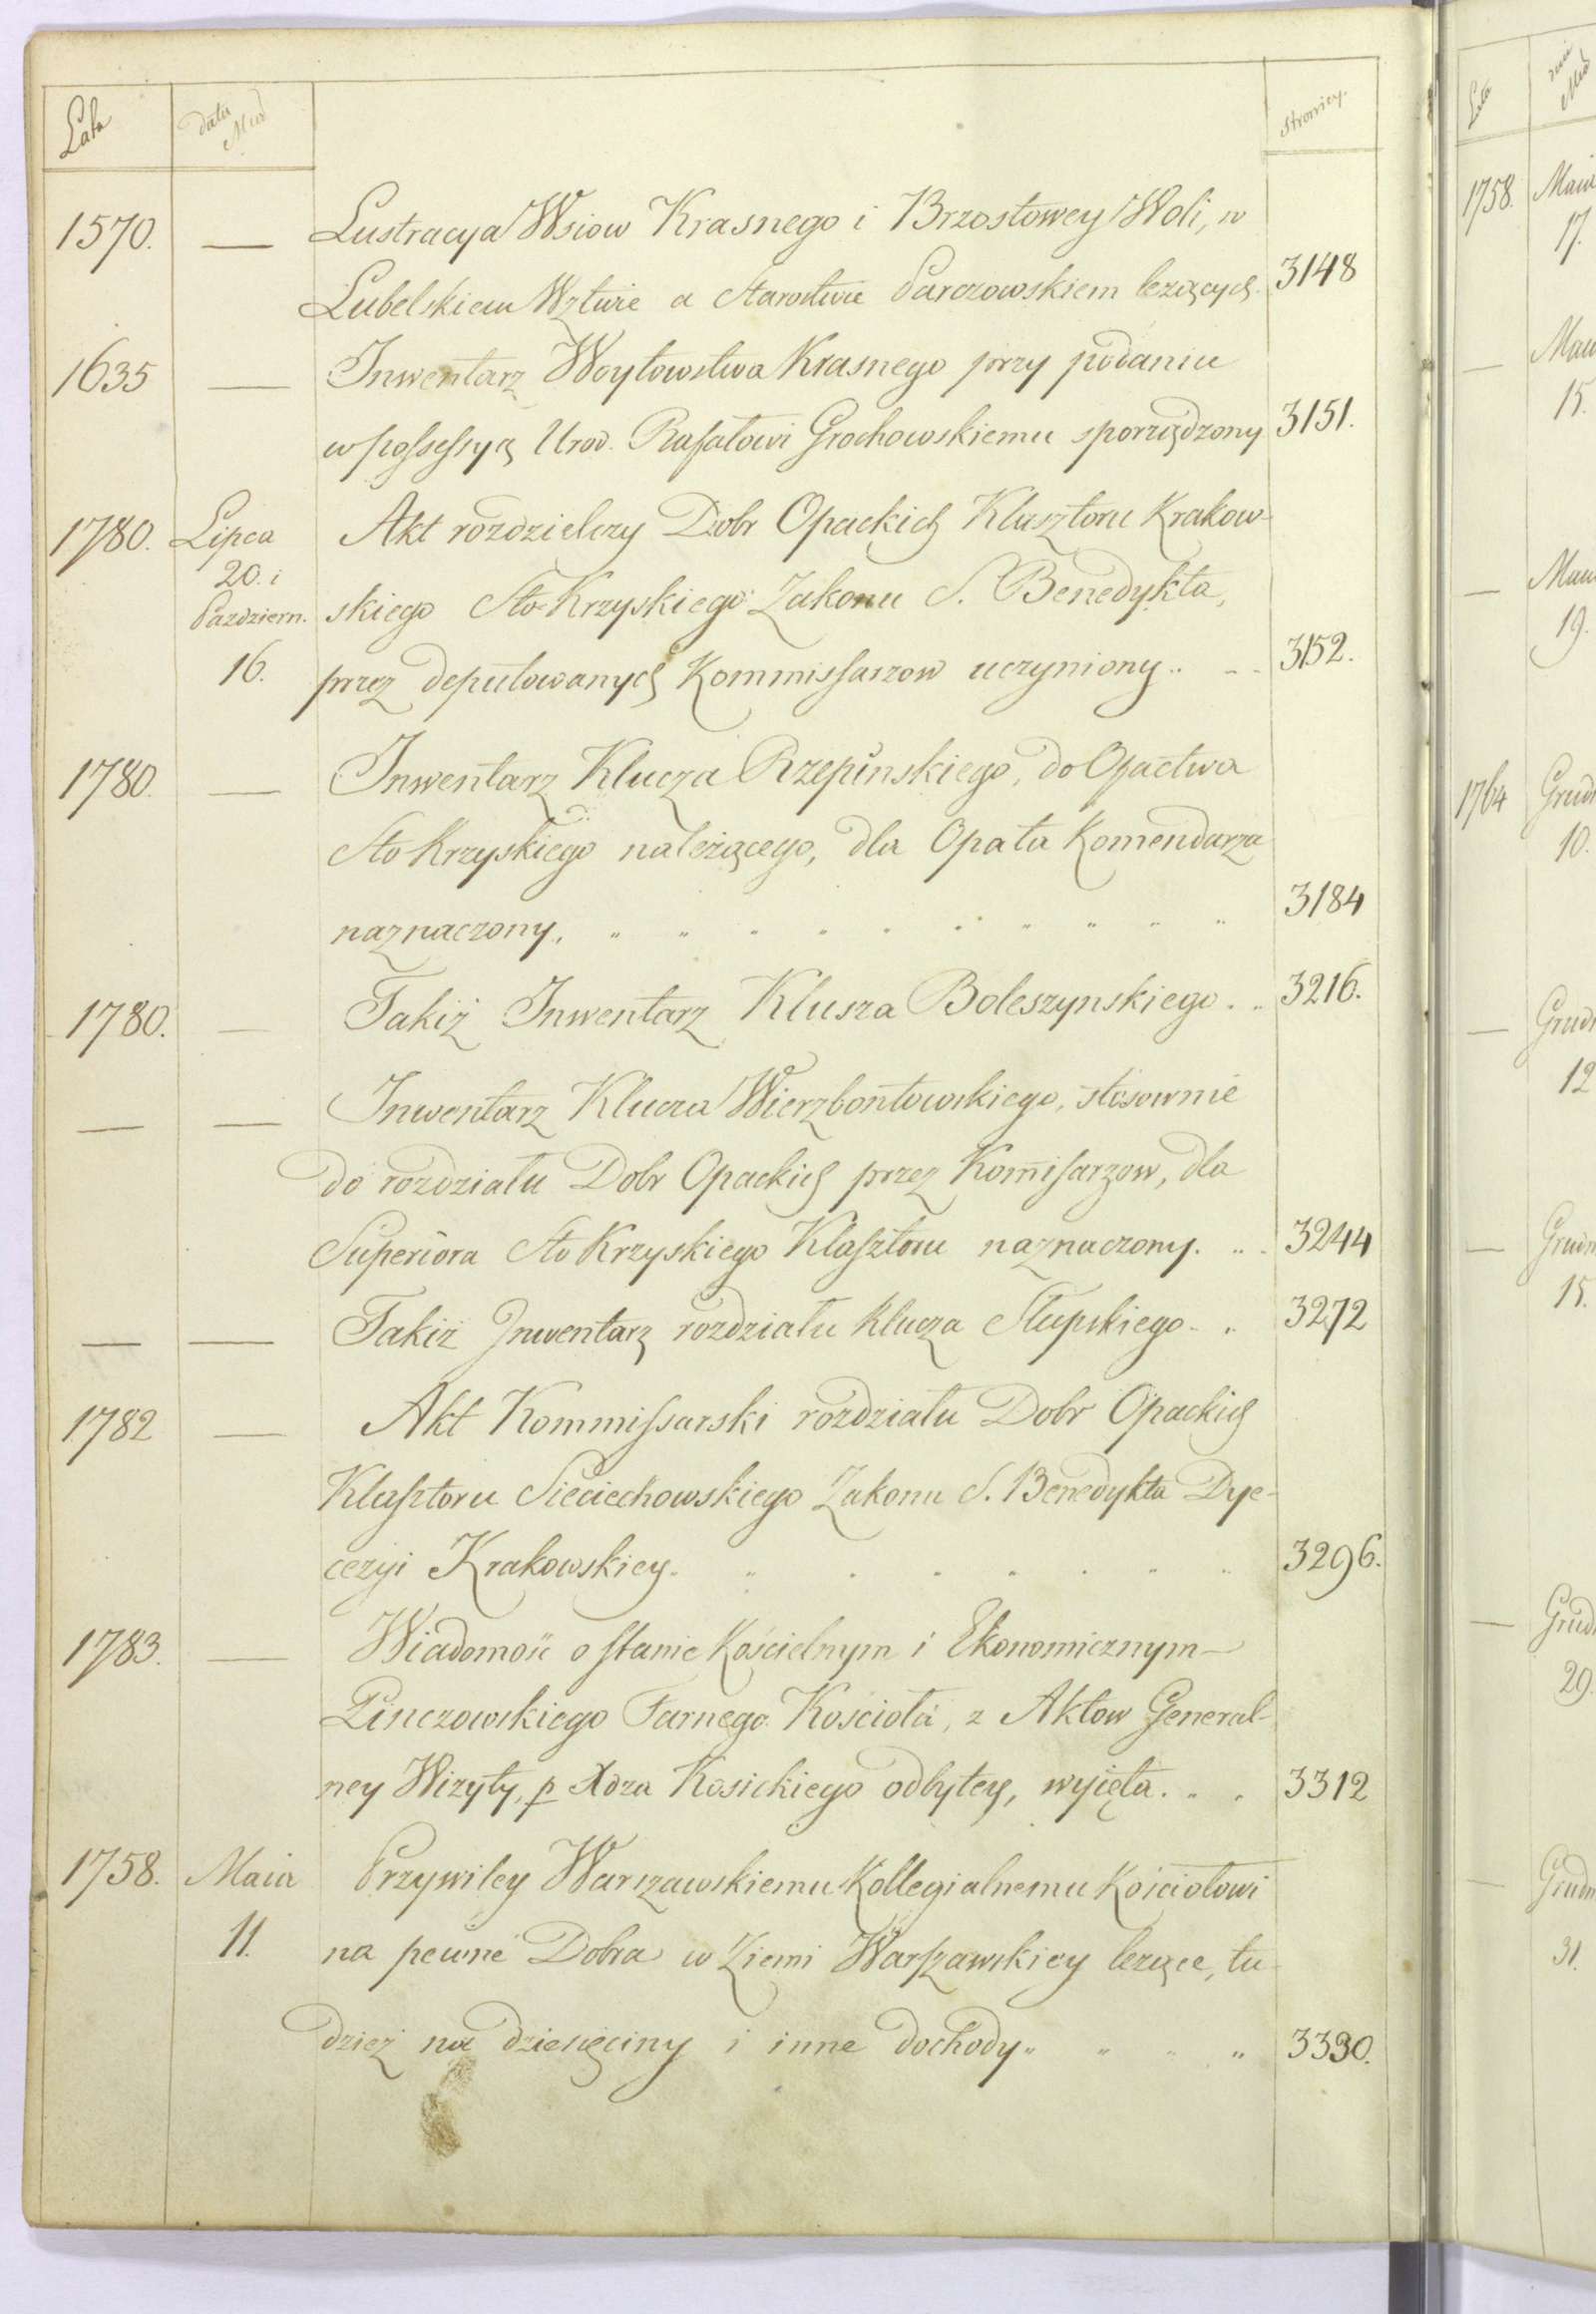 Lata data Mcd Stronicy.
1570. — Lustracya Wsiow Krasnego i Brzostowey Woli, w
Lubelskiem Wztwie a Starostwie Parczowskiem lezących. 3148
1635 — Inwentarz Woytowstwa Krasnego przy podaniu
w possessyą Urod. Rafałowi Grochowskiemu sporządzony 3151.
1780. Lipca Akt rozdzielczy Dobr Opackich Klasztoru Krakow-
20. i
Pazdziern. skiego Sto-Krzyskiego Zakonu S. Benedykta,
16. przez deputowanych Kommissarzow uczyniony .. - - 3152.
1780. — Inwentarz Klucza Rzepinskiego, do Opactwa
Sto Krzyskiego należącego, dla Opata Komendarza
naznaczony. 3184
1780. — Takiż Inwentarz Klusza Boleszynskiego . .. 3216.
— — Inwentarz Klucza Wierzbontowskiego, stosownie
do rozdziału Dobr Opackich przez Kom̄isarzow, dla
Superiora Sto Krzyskiego Klasztoru naznaczony. .. . 3244
— — Takiż Inwentarz rozdziału Klucza Słupskiego - .. 3272
1782 — Akt Kommissarski rozdziału Dobr Opackich
Klasztoru Sieciechowskiego Zakonu S. Benedykta Dye-
cezyi Krakowskiey. 3296.
1783. — Wiadomość o stanie Kościelnym i Ekonomicznym —
Pinczowskiego Farnego Kościoła, z Aktow General-
ney Wizyty, p Xdza Kosickiego odbytey, wyięta. .. . 3312
1758. Maia Przywiley Warszawskiemu Kollegialnemu Kościołowi
11. na pewne Dobra w Ziemi Warszawskiey lezące, tu-
dziez na dziesięciny i inne dochody .. 3330.
Lata
1758. Maia
17.
—
15.
—
19.
1764
10.
—
12
—
15.
—
29.
—
31.